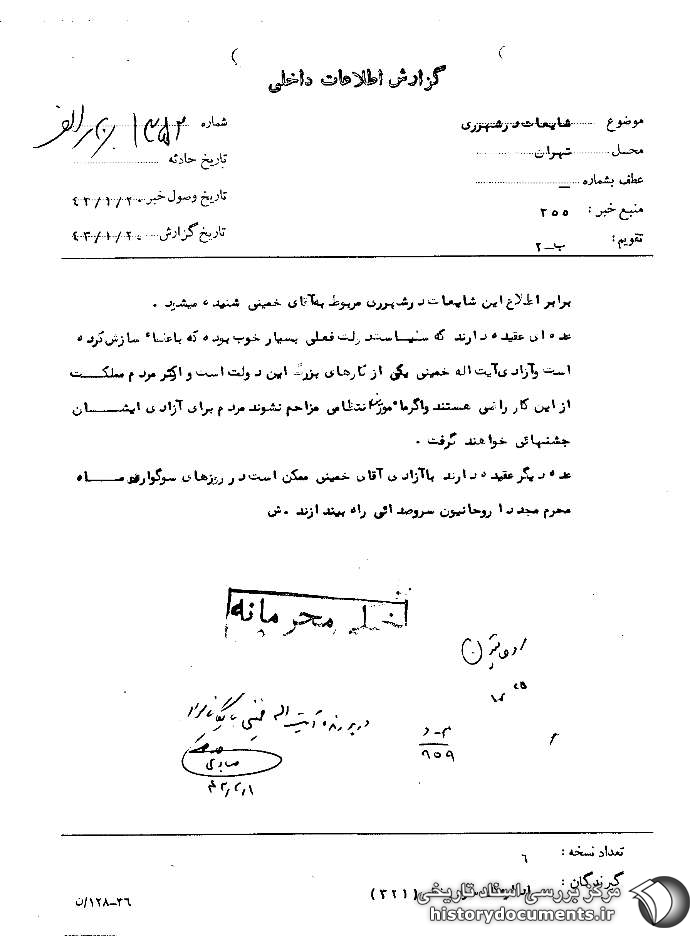 گزارش اطلاعات داخلی
موضوع شایعات در شهرری
محل تهران
عطف بشماره ــ
منبع خبر : ۲۵۵
تقویم : ب-۲
شماره ۱۳۵۲
تاریخ حادثه
تاریخ وصول خبر ۴۳/۱/۲۰
تاریخ گزارش ۴۳/۱/۲۰
برابر اطلاع این شایعات در شهرری مربوط به آقای خمینی شنیده میشود .
عده ای عقیده دارند که سیاست دولت فعلی بسیار خوب بوده که باعلماء سازش کرده
است وآزادی آیت اله خمینی یکی از کارهای بزرگ این دولت است و اکثر مردم مملکت
از این کار راضی هستند واگر مامورین انتظامی مزاحم نشوند مردم برای آزادی ایشــان
جشنهائی خواهند گرفت .
عده دیگر عقیده دارند باآزادی آقای خمینی ممکن است در روزهای سوگواری مــاه
محرم مجددا روحانیون سروصدائی راه بیندازند . ش
خیلی محرمانه
در پرونده آیت اله خمینی بایگانی شود
م-د
۹۵۹
صابری
تعداد نسخه : ۶
گیرندگان : (۳۲۱)
۳۶-۱۲۸/ن
مرکز بررسی اسناد تاریخی
historydocuments.ir